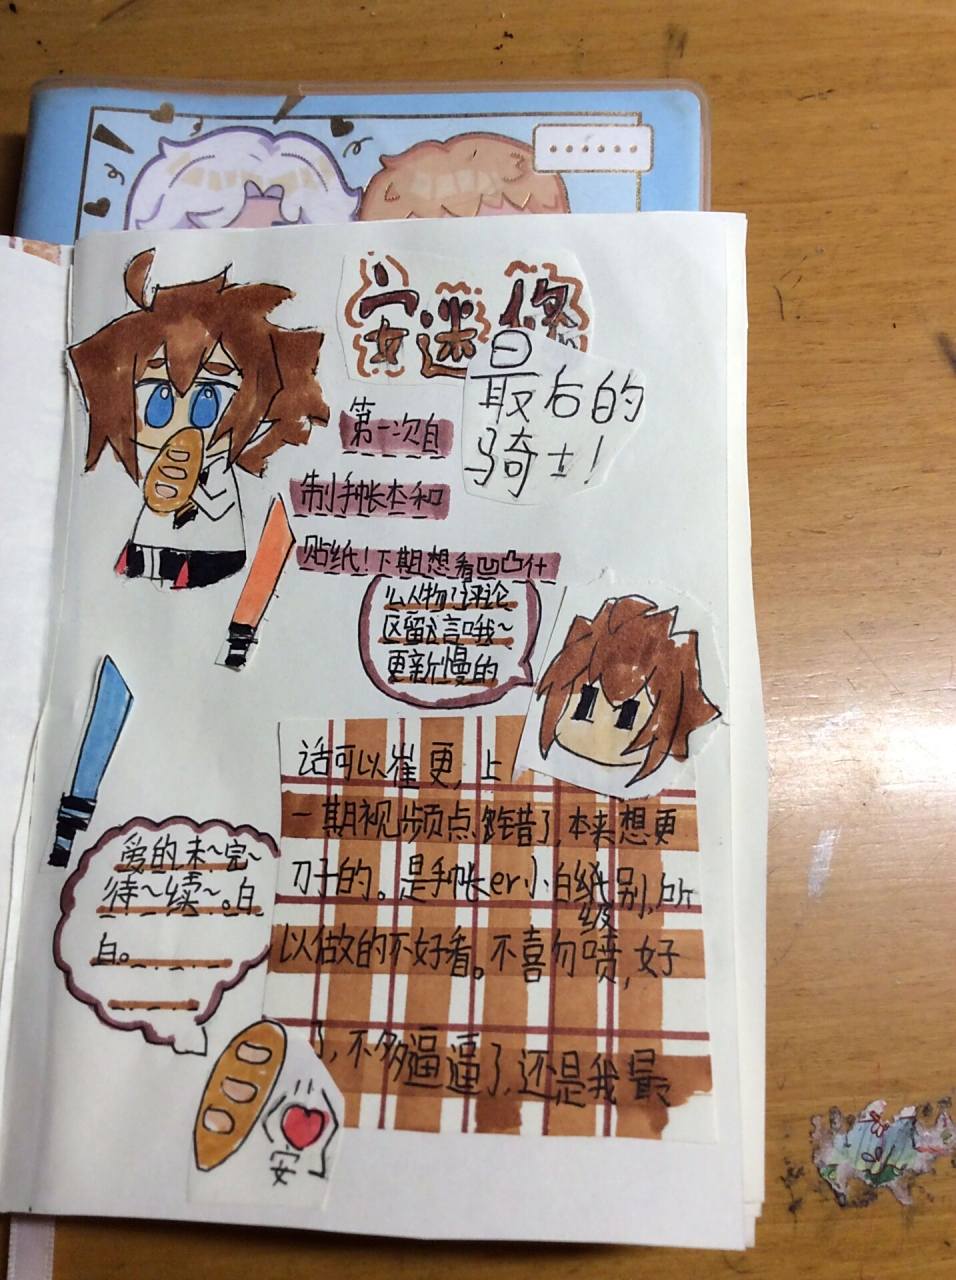 安迷修
最后的
骑士！
第一次自
制手帐本和
贴纸！下期想看凹凸什
么人物评论
区留言哦~
更新慢的
话可以崔更，上
一期视频点错了，本来想更
刀子的。是手帐er小白纸别，所
级
以做的不好看。不喜勿喷，好
了，不多逼逼了，还是我最
爱的未~完~
待~续~。白
白。
安